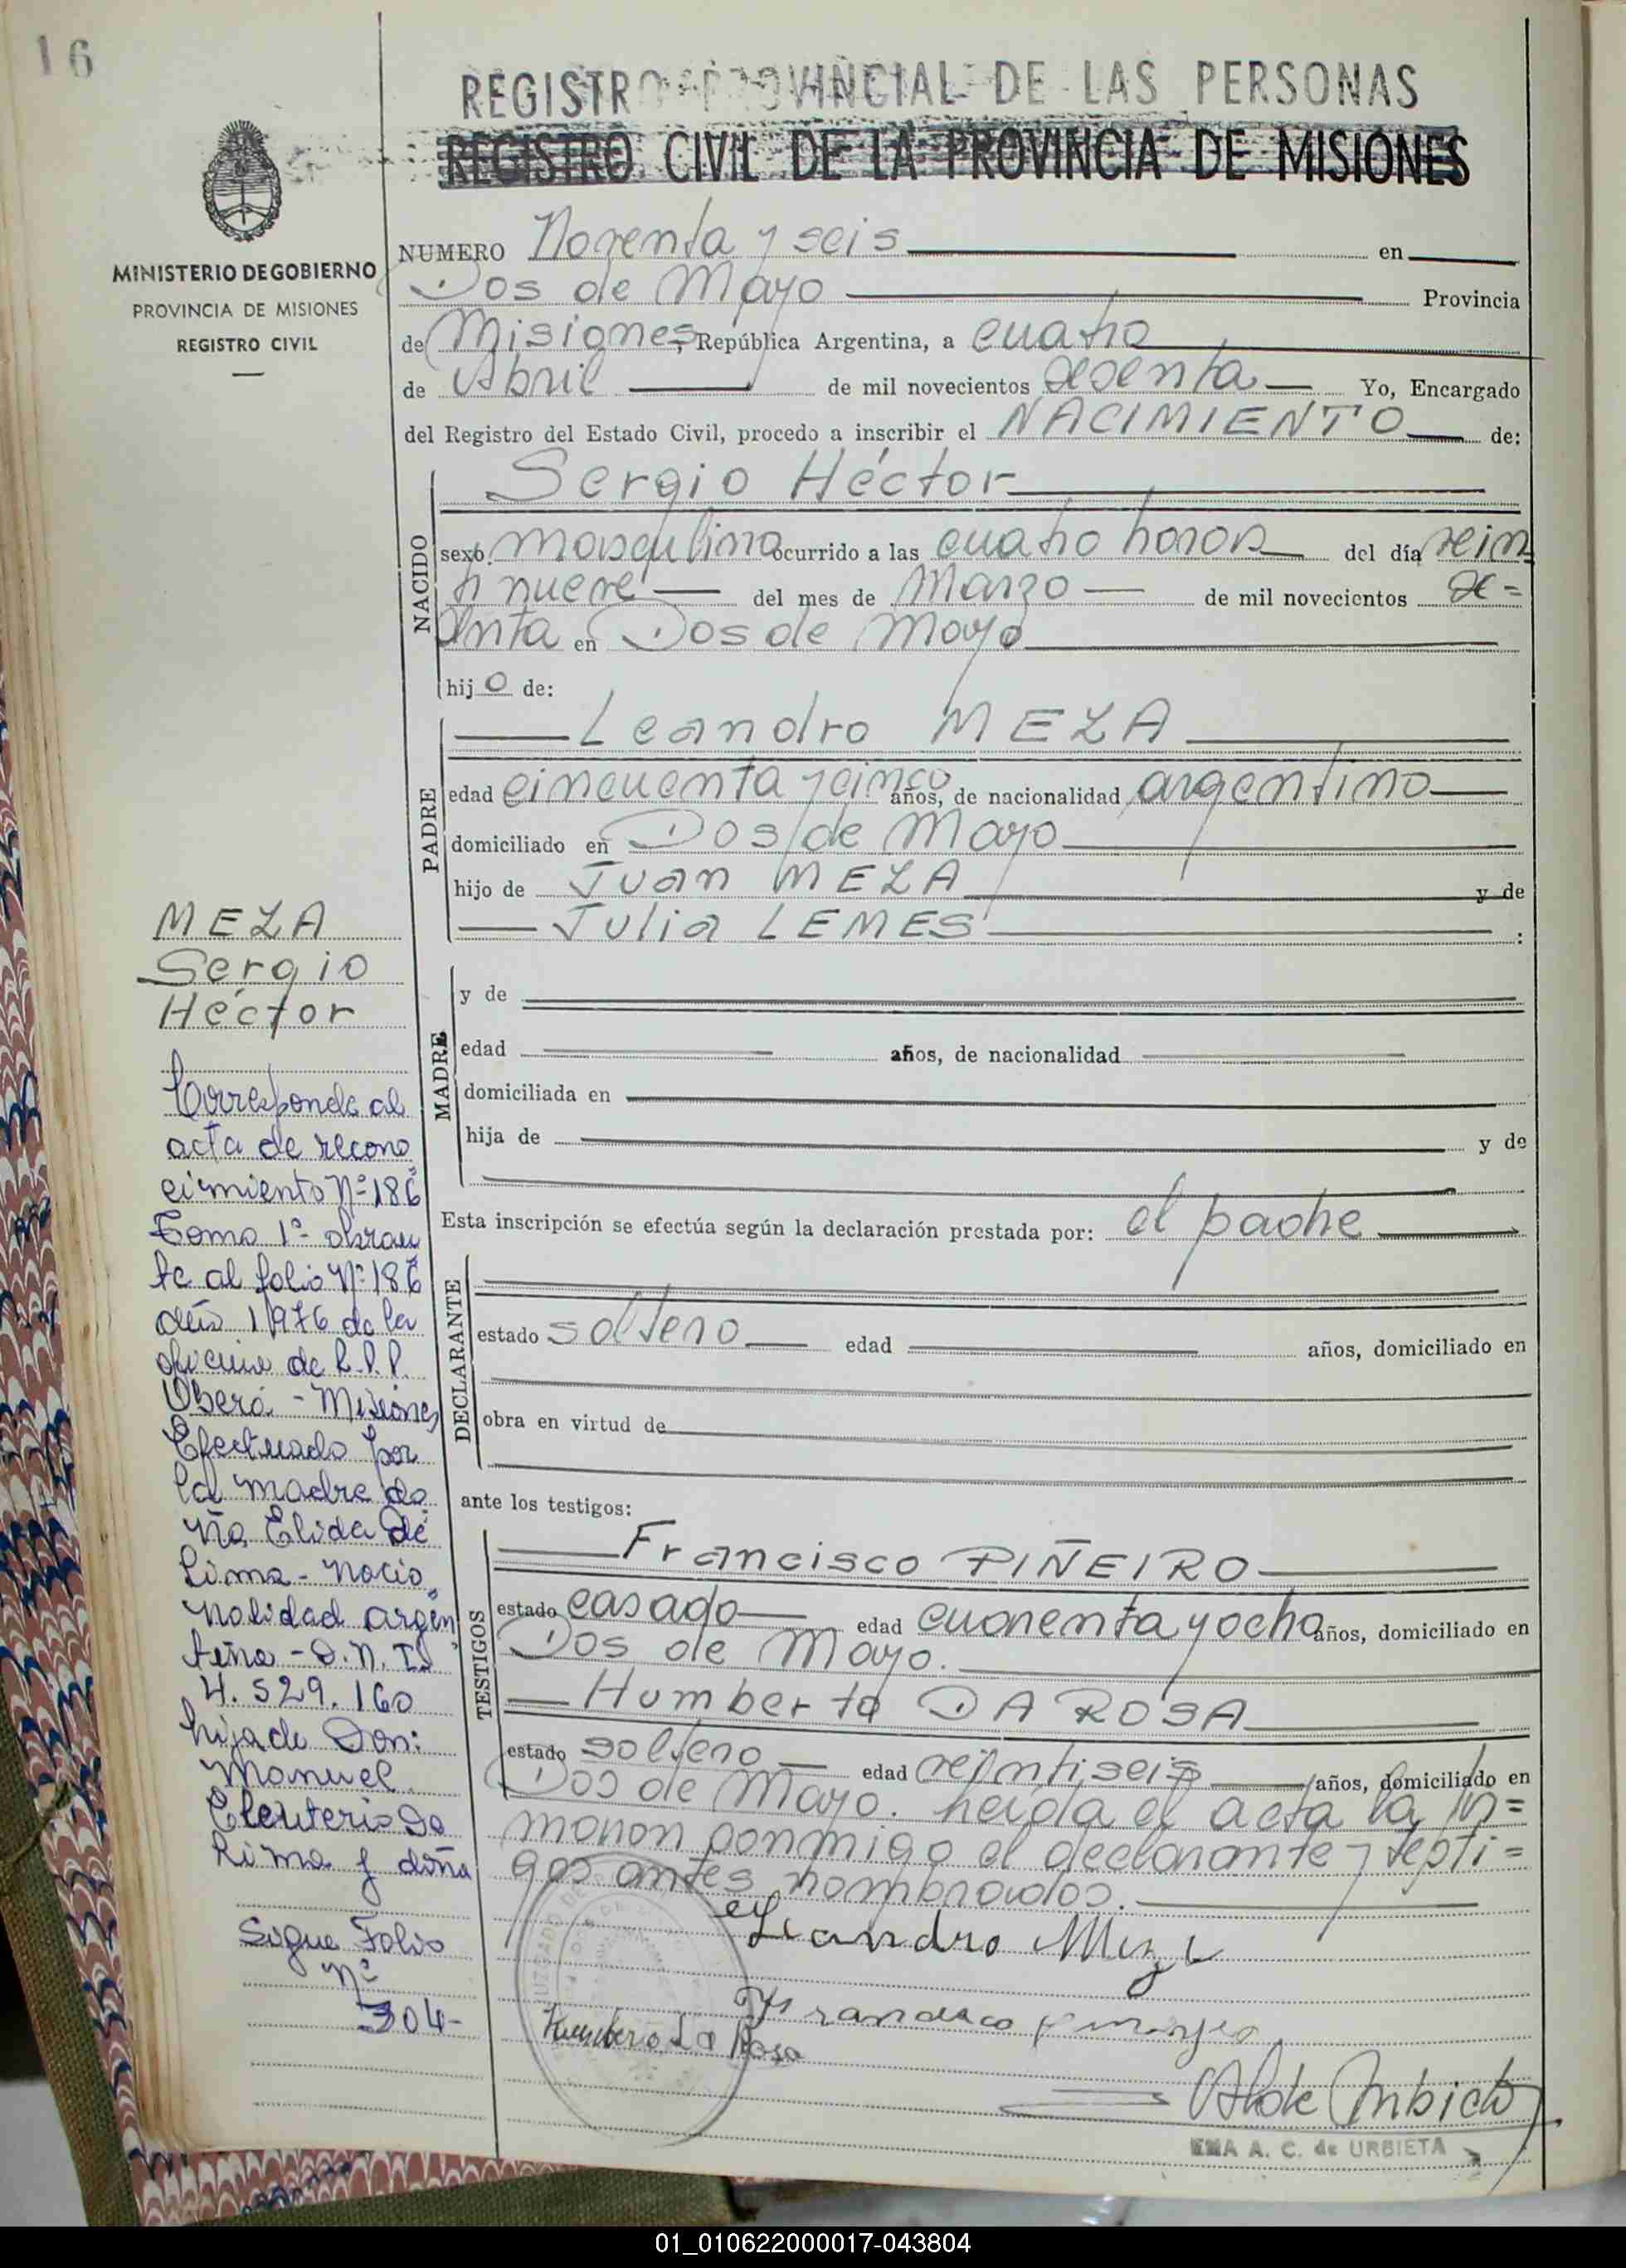 16
REGISTRO PROVINCIAL DE LAS PERSONAS
REGISTRO CIVIL DE LA PROVINCIA DE MISIONES
MINISTERIO DE GOBIERNO
PROVINCIA DE MISIONES
REGISTRO CIVIL
NUMERO Noventa y seis en
Dos de Mayo Provincia
de Misiones, República Argentina, a cuatro
de Abril de mil novecientos sesenta Yo, Encargado
del Registro del Estado Civil, procedo a inscribir el NACIMIENTO de:
NACIDO
Sergio Héctor
sexo masculino ocurrido a las cuatro horas del día vein
ti nueve del mes de Marzo de mil novecientos se=
senta en Dos de Mayo
hijo de:
PADRE
Leandro MEZA
edad cincuenta y cinco años, de nacionalidad argentino
domiciliado en Dos de Mayo
hijo de Juan MEZA y de
Julia LEMES :
MADRE
y de
edad años, de nacionalidad
domiciliada en
hija de y de
Esta inscripción se efectúa según la declaración prestada por: el padre
DECLARANTE
estado soltero edad años, domiciliado en
obra en virtud de
ante los testigos:
TESTIGOS
Francisco PIÑEIRO
estado casado edad cuarenta y ocho años, domiciliado en
Dos de Mayo.
Humberto DA ROSA
estado soltero edad veintiseis años, domiciliado en
Dos de Mayo. Leída el acta la fir=
maron conmigo el declarante y testi=
gos antes nombrados.
Leandro Meza
Francisco
Humberto Da Rosa
EMA A. C. de URBIETA
MEZA
Sergio
Héctor
Corresponde al
acta de recono
cimiento Nº 186
Tomo 1º obran
te al folio Nº 186
año 1976 de la
oficina de R.P.P.
Oberá - Misiones
Efectuado por
la madre do
ña Elida De
Lima - nacio
nalidad argen
tina - D.N.I.
4.529.160
hija de Don:
Manuel
Eleuterio Da
Lima y doña
Sigue Folio
Nº
304-
01_010622000017-043804